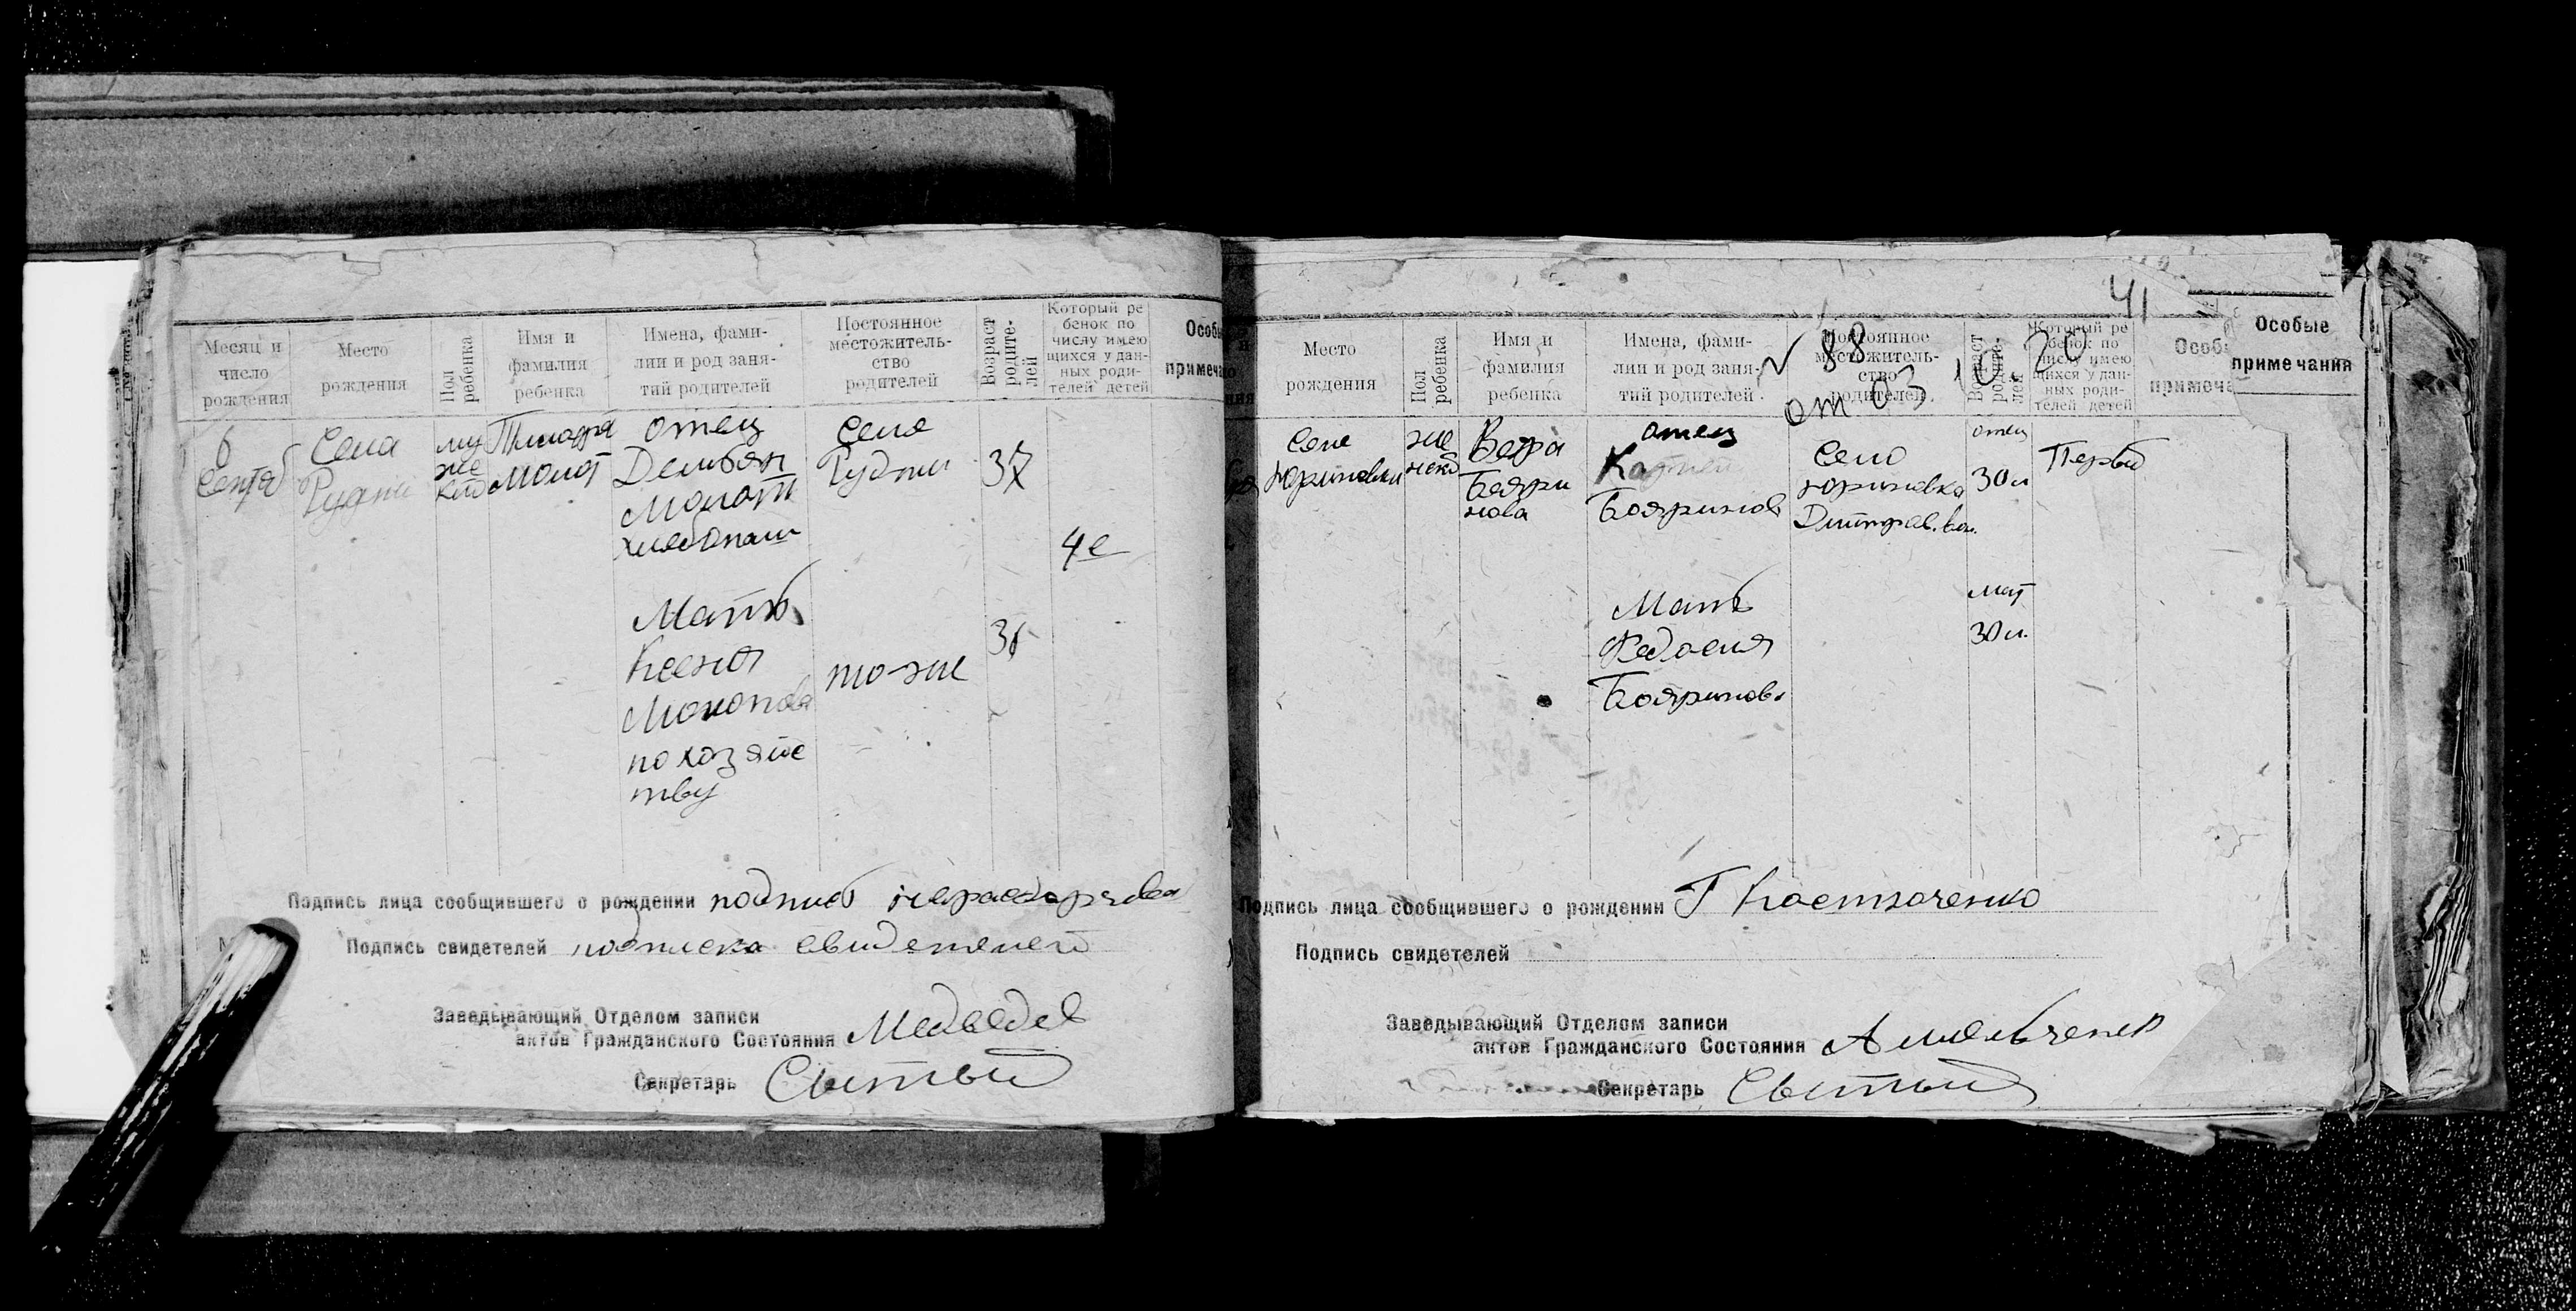 Месяц и число рождения
Место рождения
Пол ребенка
Имя и фамилия ребенка
Имена, фамилии и род занятий родителей
Постоянное местожительство родителей
Возраст родителей
Который ребенок по числу имеющихся у данных родителей детей
Особы
примеча
6
Сентяб
Села
Рудни
муж
ског
Молот
отец
Демьян
Молот
хлебопаш
Село
Рудни
37
4е
Мать
Ксения
Молотова
по хозяйс
тву
то-же
Подпись лица сообщившего о рождении подпис
Подпись свидетелей подписка свидетелей
Заведывающий Отделом записи
актов Гражданского Состояния Медведев
Секретарь Сытый
41
№ 88
от 03 10. 20
Место
рождения
Пол ребенка
Имя и фамилия ребенка
Имена, фамилии и род занятий родителей
Постоянное местожительство родителей
Возраст родителей
Который ребенок по числу имеющихся у данных родителей детей
Особ
примеча
Особые
примечания
Селе
Юриновки
же
нско
Вера
Бояри
нова
отец
Бояринов
Село
Юриновка
отец
30 л
Первый
Мать
Федосия
Бояринова
мат
30 л.
Подпись лица сообщившего о рождении Г Костюченко
Подпись свидетелей
Заведывающий Отделом записи
актов Гражданского Состояния
Секретарь Сытый